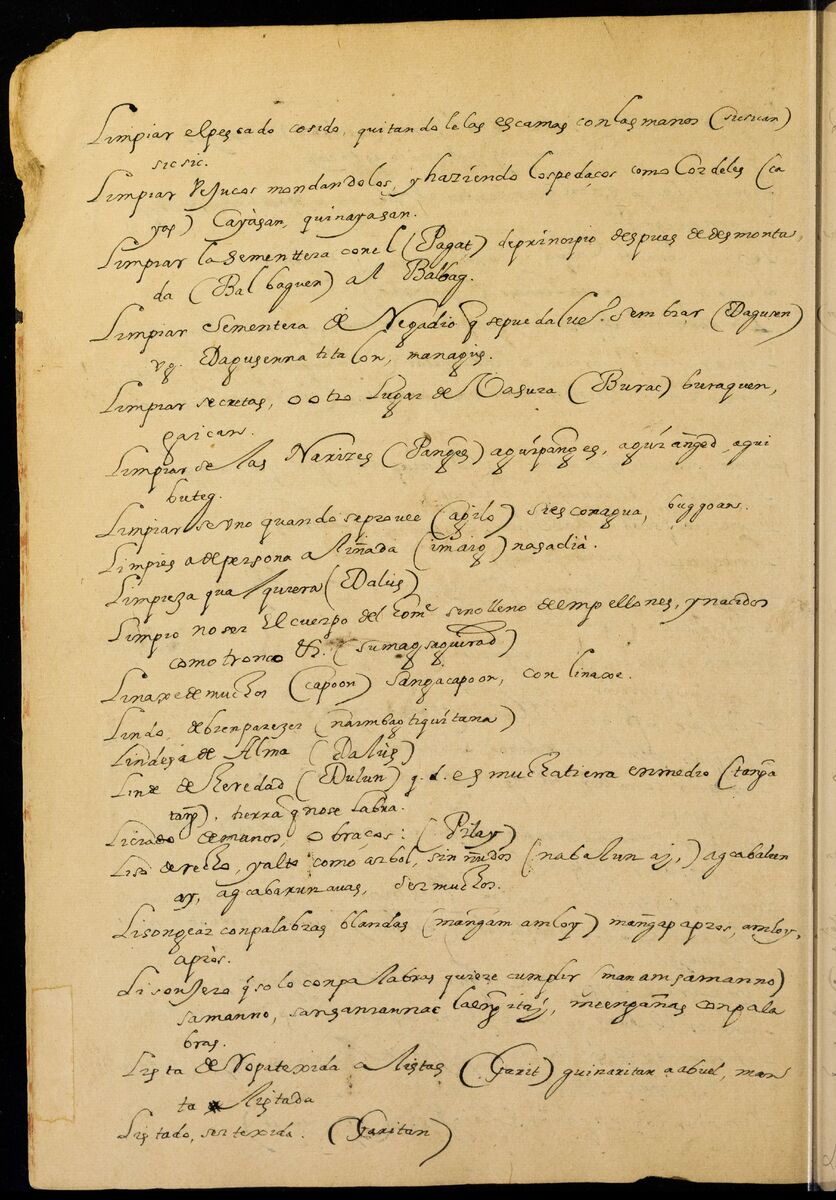 Limpiar el pescado cosido, quitandolelas escamas con las manos (sicsican)
sicsic.
Limpiar Vejucos mondandolos, y haziendo lospedaços como Cordeles (ca
yas) Cayàsan, quinayasan.
Limpiar la sementtera con el (Pagat) deprincipio despues de desmonta
da (Balbaguen) al Balbag.
Limpiar sementera de Regadio q sepueda sembrar (Dagusen)
vg. Dagusenna ti talon, managus.
Limpiar secretas, o otro Lugar de Vasura (Burac) buraquen,
gaican.
Limpiarse las Narizes (Panges) aguipanges, aguianged, agui
buteg.
Limpiarse vno quando seprovee (agilo) si es con agua, buggoan.
Limpies a de persona aliñada (imaig) nasadià.
Limpieza qualquiera (Dalùs)
Limpio no ser El cuerpo del home sino lleno de empellones, y nacidos
como tronco &. (sumagsaguirad)
Linaxe de muchos (capoon) Sangacapoon, con linaxe.
Lindo, de bien parezer (naimbag tiquitana)
Lindeza de Alma (Dalùs)
Linde de heredad (Dulun) q. d. es mucha tierra enmedio (tanga
tang), tierra q nose Labra.
Liciado de manos, o braços: (Pilay)
Liso derecho, y alto como arbol, sin ñudos (nabalun ay,) agcabalun
ay, agcabaxun auas, ser muchos.
Lisongear con palabras blandas (mangam amloy) mangap apros, amloy,
apròs.
Lisonjero q solo con palabras quiere cumplir (manamsamanno)
samanno, sansamannac laengitay, me engañas con pala
bras.
Lista de Ropa texida a listas (Garit) guinaritan a abel, man
ta listada
Listado, ser texida. (Garitan)